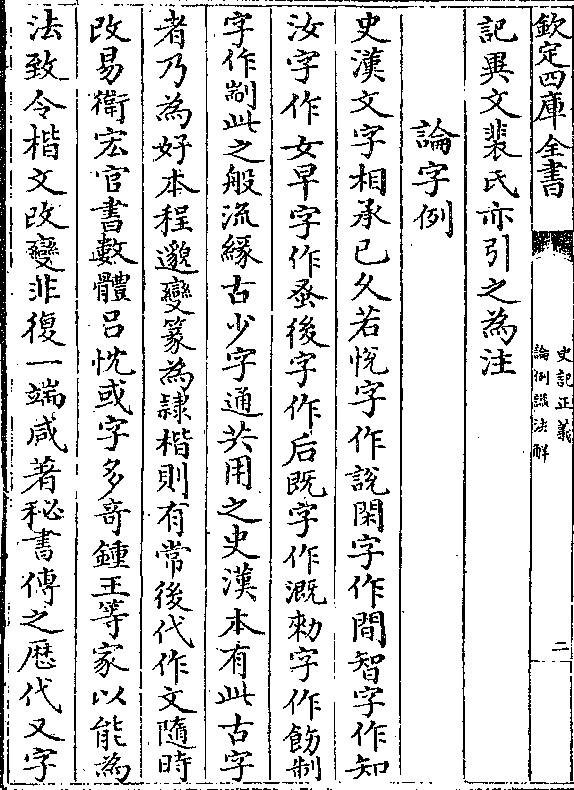 欽定四庫全書
史記正義
論例謚法解
二
記異文裴氏亦引之為注
論字例
史漢文字相承已久若悅字作說閑字作間智字作知
汝字作女早字作蚤後字作后既字作溉勑字作飭制
字作剬此之般流緣古少字通共用之史漢本有此古字
者乃為好本程邈變篆為隷楷則有常後代作文隨時
改易衛宏官書數體呂忱或字多奇鍾王等家以能為
法致令楷文改變非復一端咸著秘書傳之歴代又字